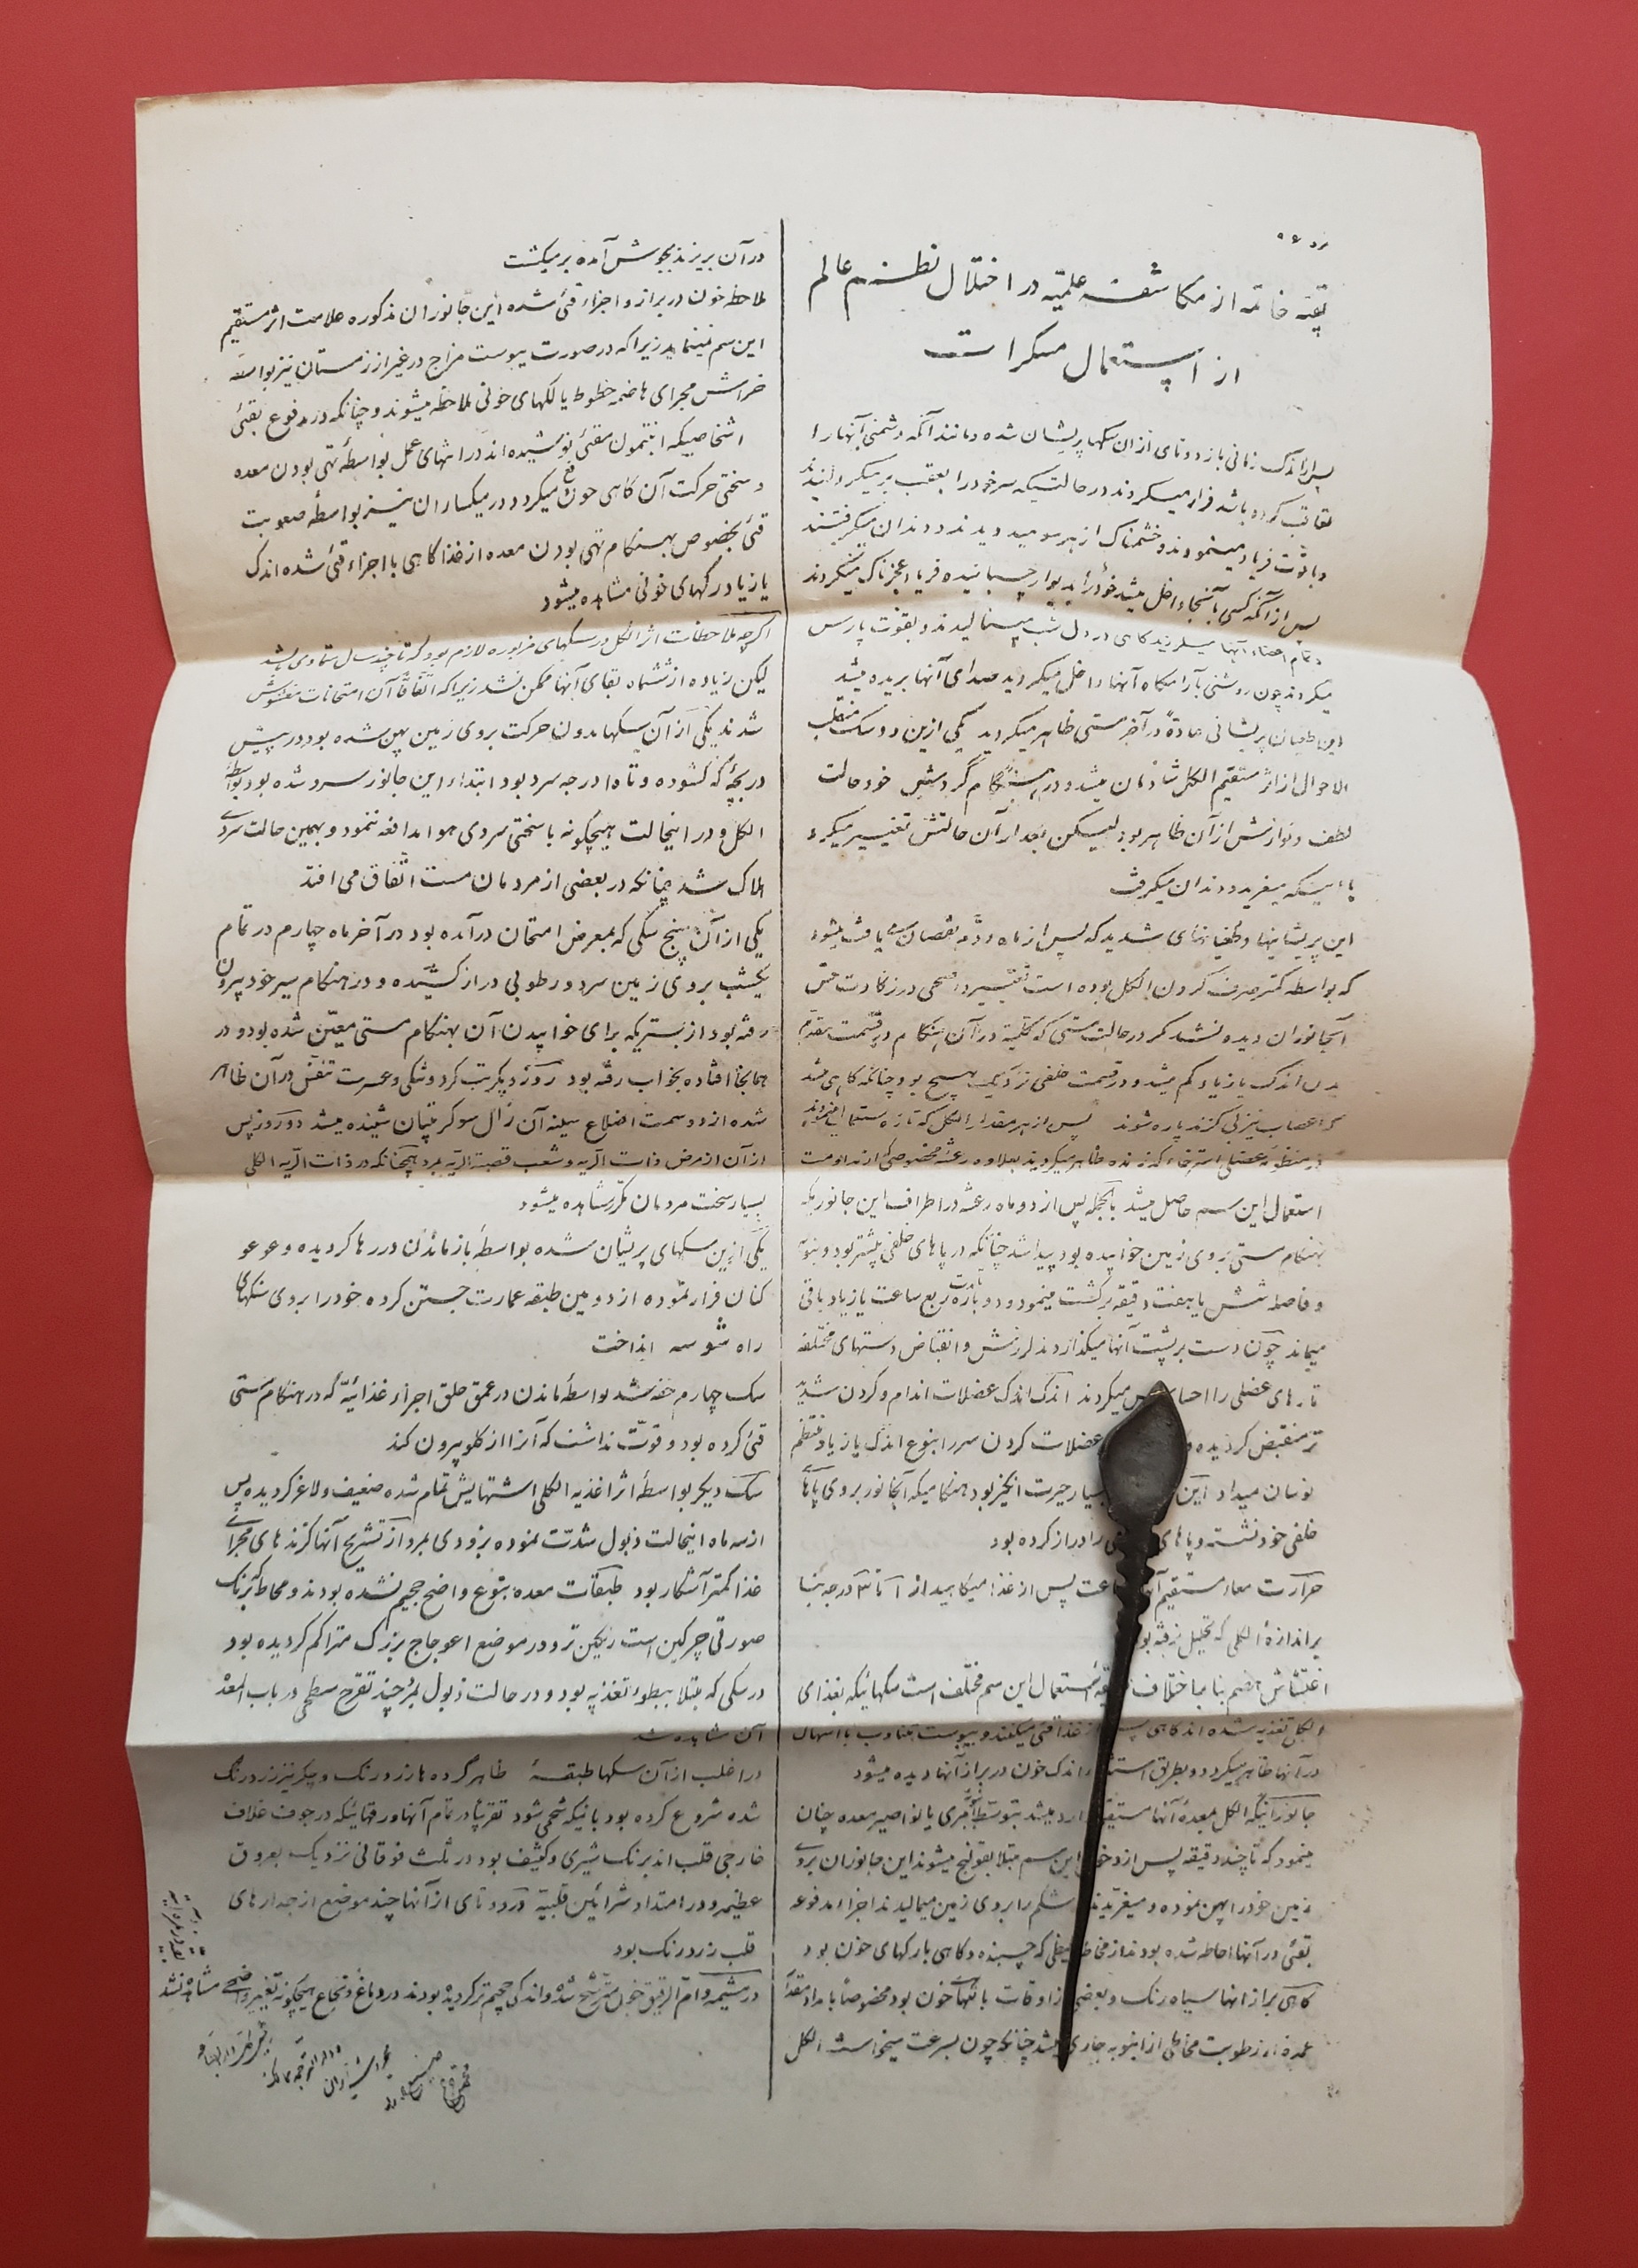 بقیه خاتمه از مکاشفه علمیّه در اختلال نظم عالم
از استعمال مسکرات
پس از اندک زمانی باز دو تای از ان سکها پریشان شده و مانند آنکه دشمنی آنها را
تعاقب کرده باشد فرار میکردند در حالتیکه سر خود را بعقب بر میکردانیدند
و باقوت فریاد مینمودند و خشمناک از هر سو میدویدند و دندان میکرفتند
پس از آنکه کسی بآنجا داخل میشد خود را بدیوار چسبانیده فریاد عجزناک میکردند
و تمام اعضاء آنها میلرزید کاهی در دل شب مینالیدند و بقوت پارس
میکردند چون روشنی بآرامکاه آنها داخل میکردید صدای آنها بریده میشد
این طغیان پریشانی عادةً در آخر مستی ظاهر میکردید یکی ازین دو سک منقلب
الاحوال از اثر مستقیم الکل شادمان میشد و در هنکام کردش خود حالت
لطف و نوازش از آن ظاهر بود لیکن بعد از آن حالتش تغییر میکرد
با اینکه میغرید و دندان میکرفت
این پریشانیها و طغیانهای شدید که پس از ماه دوم نقصان می یافت میشود
که بواسطه کمتر صرف کردن الکل بوده است تغییر واضحی در زکاوت حس
آنجانوران دیده نشد مکر در حالت مستی که کلیّة در آن هنکام در قسمت مقدم
بدن اندک یا زیاد کم میشد و در قسمت خلفی نزدیک بهیچ بود چنانکه کاهی میشد
اعصاب نیز بی کزند پاره شوند پس از هر مقدار الکل که تازه استعمال مینمودند
در منظومه عضلی استرخاء کذرنده ظاهر میکردید بعلاوه رعشه مخصوصی از مداومت
استعمال این سم حاصل میشد بالجمله پس از دو ماه رعشه در اطراف این جانور که
بهنکام مستی بروی زمین خوابیده بود پیدا شد چنانکه در پاهای خلفی بیشتر بود و بنوبه
و فاصله شش یا هفت دقیقه برکشت مینمود و دوباره بمدت ربع ساعت یا زیاد باقی
میماند چون دست بر پشت آنها میکذاردند لرزش و انقباض دستهای مختلفه
تارهای عضلی را احساس میکردند اندک اندک عضلات اندام و کردن شدید
تر منقبض کردیده و عضلات کردن سر را بنوع اندک یا زیاد منتظم
نوسان میداد این بسیار حیرت انکیز بود هنکامیکه آنجانور بروی پاهای
خلفی خود نشسته و پاهای را دراز کرده بود
حرارت معاء مستقیم ساعت پس از غذا میکاهید از درجه بنا
بر اندازهٔ الکلی که تحلیل رفته بود
اغتشاش هضم بنا باختلاف استعمال این سم مختلف است سکهائیکه بغذای
الکلی تغذیه شده اند کاهی پس از غذا قئی میکنند و یبوست متناوب با اسهال
در آنها ظاهر میکردد و بطریق اندک خون در براز آنها دیده میشود
جانورانیکه الکل بمعدهٔ آنها مستقیماً وارد میشد بتوسط مری یا نواصیر معده چنان
مینمود که تا چند دقیقه پس از دخول این سم مبتلا بقولنج میشوند این جانوران بروی
زمین خود را پهن نموده و میغریدند شکم را بروی زمین میمالیدند اجزاء مدفوعه
بقئی در آنها احاطه شده بودند از مخاط غلیظی که چسبنده و کاهی بارکهای خون بود
کاهی براز انها سیاه رنک و بعضی از اوقات با خون بود مخصوصاً بامداد مقدار
عمدهٔ از رطوبت مخاطی از انبوبه جاری میشد چنانکه چون بسرعت میخواست الکل
در آن بریزند بجوش آمده بر میکشت
ملاحظه خون در براز و اجزاء قئی شده این جانوران مذکوره علامت اثر مستقیم
این سم نمینماید زیرا که در صورت یبوست مزاج در غیر از زمستان نیز بواسطه
خراش مجرای هاضمه خطوط یا لکهای خونی ملاحظه میشوند و چنانکه در مدفوع بقئی
اشخاصیکه انتیمون مقئی نوشیده اند در انتهای عمل بواسطهٔ تهی بودن معده
و سختی حرکت آن کاهی خون دفع میکردد در میکساران نیز بواسطهٔ صعوبت
قئی بخصوص بهنکام تهی بودن معده از غذا کاهی با اجزاء قئی شده اندک
یا زیاد رکهای خونی مشاهده میشود
اکرچه ملاحظات اثر الکل در سکهای مزبوره لازم بود که تا چند سال متمادی باشد
لیکن زیاده از ششماه بقای آنها ممکن نشد زیرا که اتفاقاً آن امتحانات مغشوش
شدند یکی از آن سکها بدون حرکت بروی زمین پهن شده بود در پیش
دریچهٔ که کشوده و تا ده درجه سرد بود ابتداء این جانور سرد شده بود بواسطهٔ
الکل و در اینحالت هیچکونه با سختی سردی هوا مدافعه ننمود و بهمین حالت سردی
هلاک شد چنانکه در بعضی از مردمان مست اتفاق می افتد
یکی از آن پنج سکی که بمعرض امتحان درآمده بود در آخر ماه چهارم در تمام
یکشب بروی زمین سرد و رطوبی دراز کشیده و در هنکام سیر خود بیرون
رفته بود از بستریکه برای خوابیدن آن بهنکام مستی معیّن شده بود و در
همانجا افتاده بخواب رفته بود روز دیکر تب کرد و تنکی و عسرت تنفس در آن ظاهر
شده از دو سمت اضلاع سینه آن رال سوکرپیتان شنیده میشد دو روز پس
از آن از مرض ذات الریه و شعب قصبة الریه بمرد همچنانکه در ذات الریه الکلی
بسیار سخت مردمان مکرر مشاهده میشود
یکی ازین سکهای پریشان شده بواسطهٔ باز ماندن در رها کردیده و عوعو
کنان فرار نموده از دومین طبقه عمارت جستن کرده خود را بروی سنکهای
راه شوسه انداخت
سک چهارم خفه شد بواسطهٔ ماندن در عمق حلق اجزاء غذائیّه که در هنکام مستی
قئی کرده بود و قوّت نداشت که آنرا از کلو بیرون کند
سک دیکر بواسطهٔ اثر اغذیه الکلی اشتهایش تمام شده ضعیف و لاغر کردیده پس
از سه ماه اینحالت ذبول شدّت نموده بزودی بمرد از تشریح آنها کزندهای مجرای
غذا کمتر آشکار بود طبقات معده بنوع واضح حجیم نشده بودند و مخاط که برنک
صورتی چرکین است رنکین تر و در موضع اعوجاج بزرک متراکم کردیده بود
در سکی که مبتلا ببطوء تغذیه بود و در حالت ذبول بمرد چند تقرح سطحی در باب المعده
آن مشاهده شد
در اغلب از آن سکها طبقهٔ ظاهر کرده ها زرد رنک و جکر نیز زرد رنک
شده شروع کرده بود بانیکه شحمی شود تقریباً در تمام آنها ورقهائیکه در جوف غلاف
خارجی قلب اند برنک شیری و کثیف بود در ثلث فوقانی نزدیک بعروق
عظیمه و در امتداد شرائین قلبیّه و در دو تای از آنها چند موضع از جدارهای
قلب زرد رنک بود
در مشیمه و ام الرقیق خون مترشح شده و اندکی حجیم تر کردیده بودند در دماغ و نخاع هیچکونه تغییر واضحی مشاهده نشد